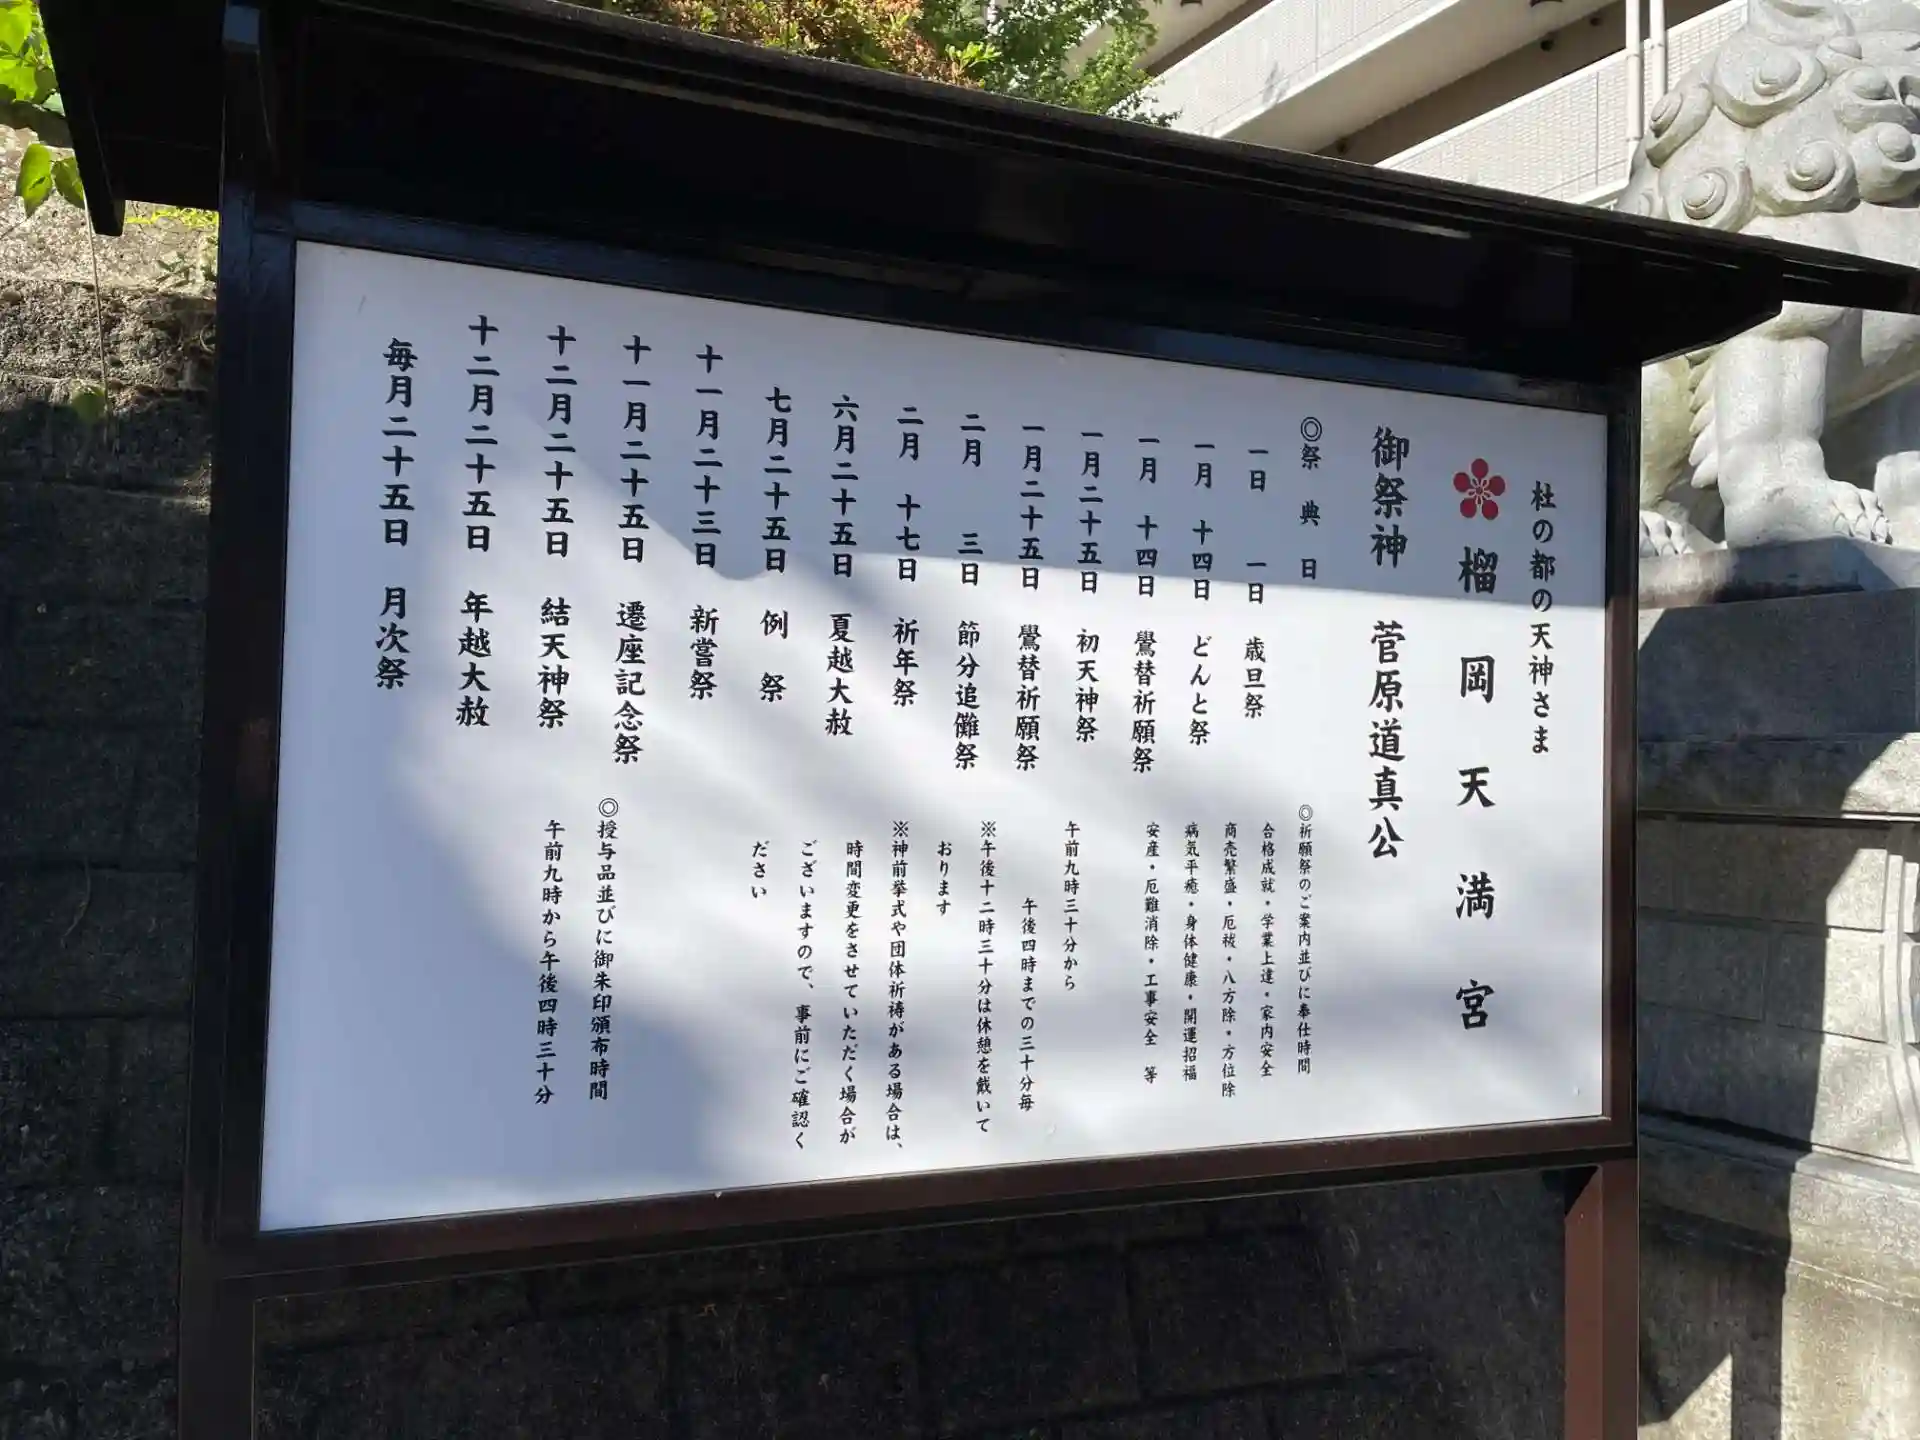 杜の都の天神さま
榴岡天満宮
御祭神 菅原道真公
◎祭典日
一日 一日 歳旦祭
一月 十四日 どんと祭
一月 十四日 鷽替祈願祭
一月二十五日 初天神祭
一月二十五日 鷽替祈願祭
二月 三日 節分追儺祭
二月 十七日 祈年祭
六月二十五日 夏越大赦
七月二十五日 例祭
十一月二十三日 新嘗祭
十一月二十五日 遷座記念祭
十二月二十五日 結天神祭
十二月二十五日 年越大赦
毎月二十五日 月次祭
◎祈願祭のご案内並びに奉仕時間
合格成就・学業上達・家内安全
商売繁盛・厄祓・八方除・方位除
病気平癒・身体健康・開運招福
安産・厄難消除・工事安全 等
午前九時三十分から
午後四時までの三十分毎
※午後十二時三十分は休憩を戴いて
おります
※神前挙式や団体祈祷がある場合は、
時間変更をさせていただく場合が
ございますので、事前にご確認く
ださい
◎授与品並びに御朱印頒布時間
午前九時から午後四時三十分